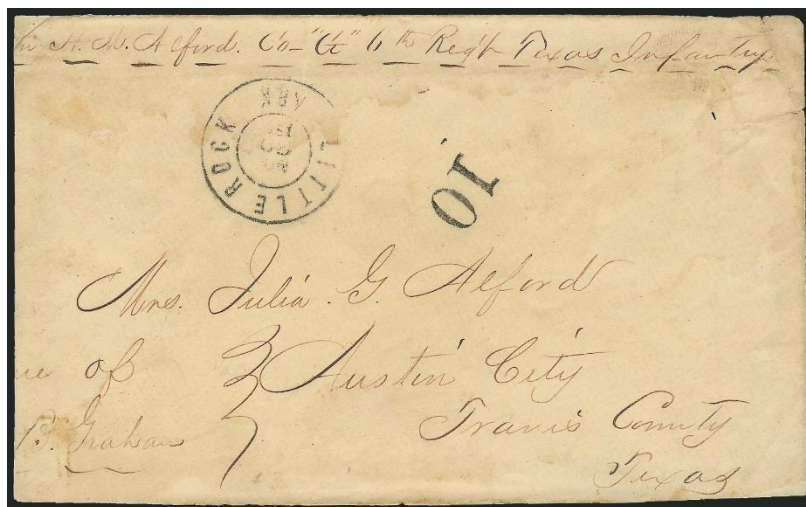 H. M. Alford. Co- "G" 6th Reg't Texas Infantry.
LITTLE ROCK
ARK
10
Mrs. Julia. G. Alford
of
Austin City
B. Graham
Travis County
Texas